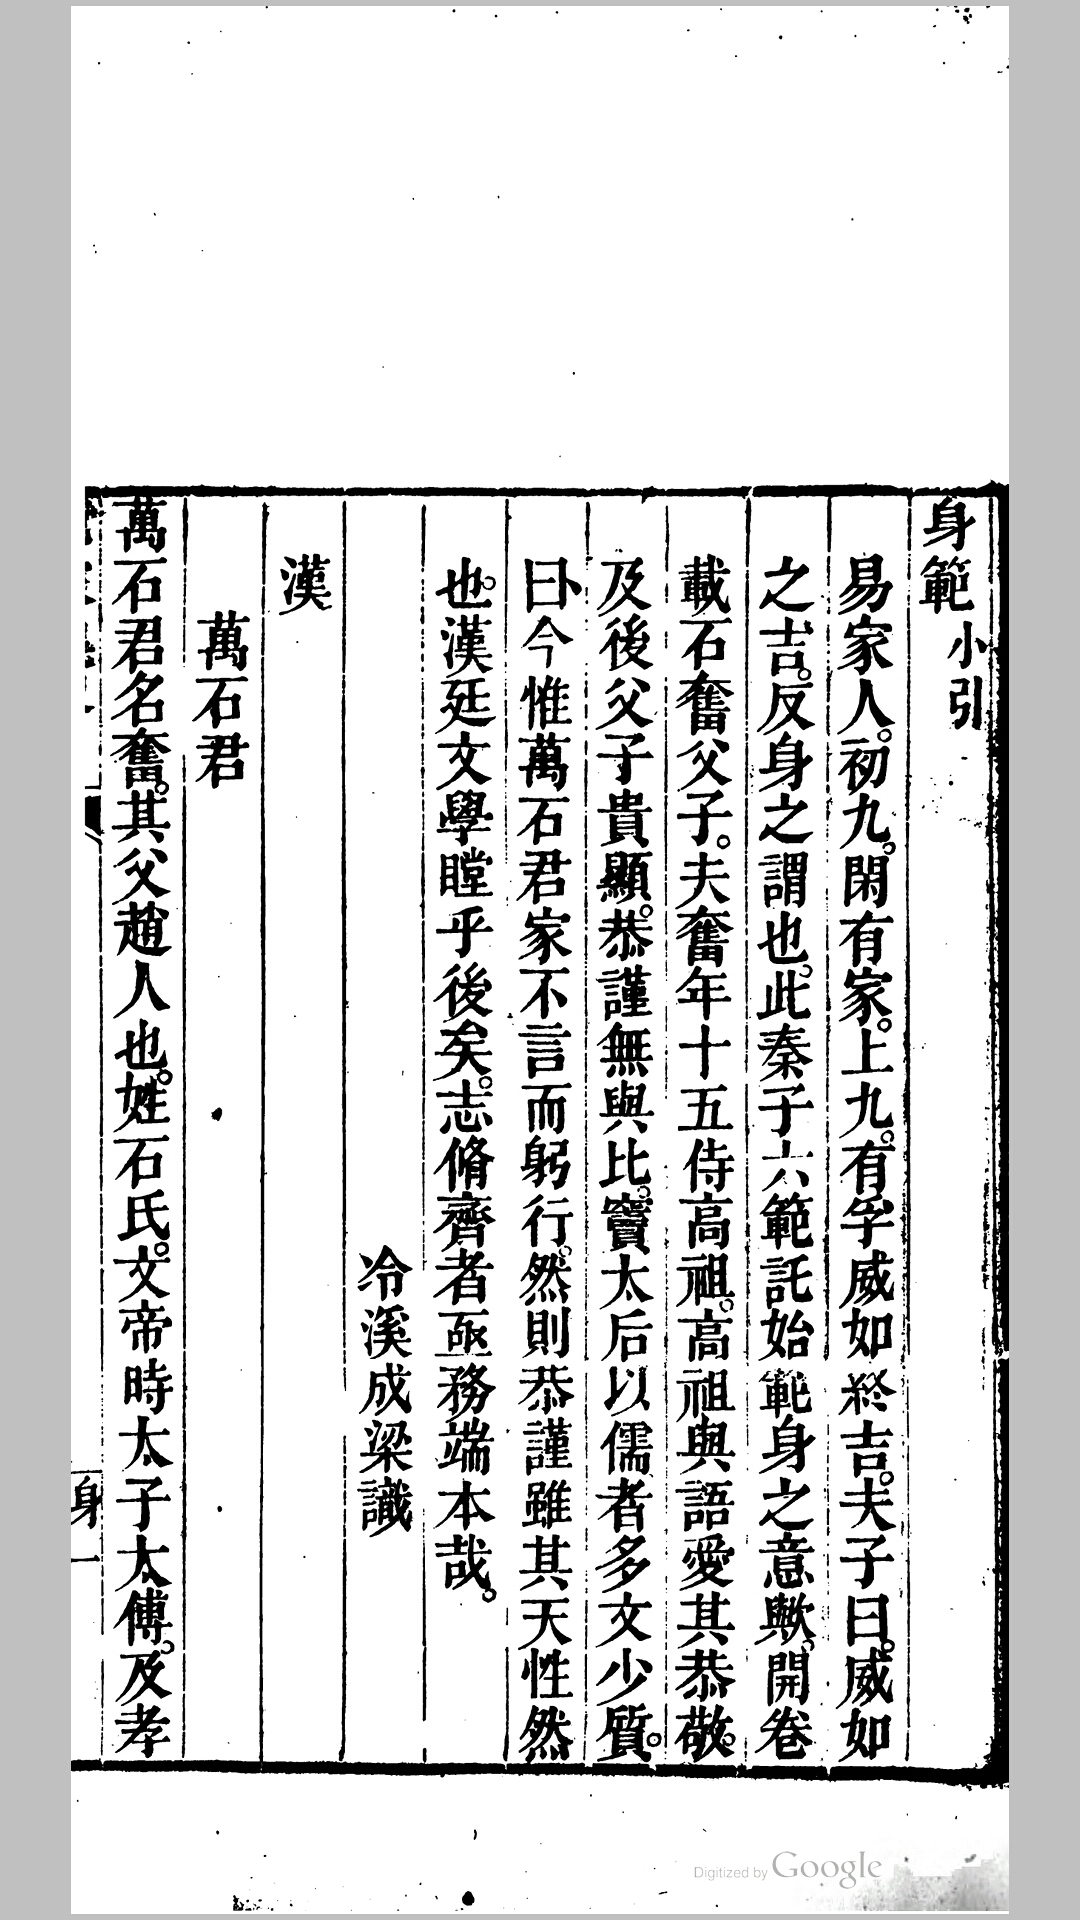 身範小引
易家人。初九。閑有家。上九。有孚威如終吉。夫子曰。威如
之吉。反身之謂也。此秦子六範託始範身之意歟。開卷
載石奮父子。夫奮年十五侍高祖。高祖與語愛其恭敬。
及後父子貴顯。恭謹無與比。竇太后以儒者多文少質。
曰今惟萬石君家不言而躬行。然則恭謹雖其天性然
也。漢廷文學瞠乎後矣。志脩齊者亟務端本哉。
冷溪成梁識
漢
萬石君
萬石君名奮。其父趙人也。姓石氏。文帝時太子太傅。及孝
身一
Digitized by Google